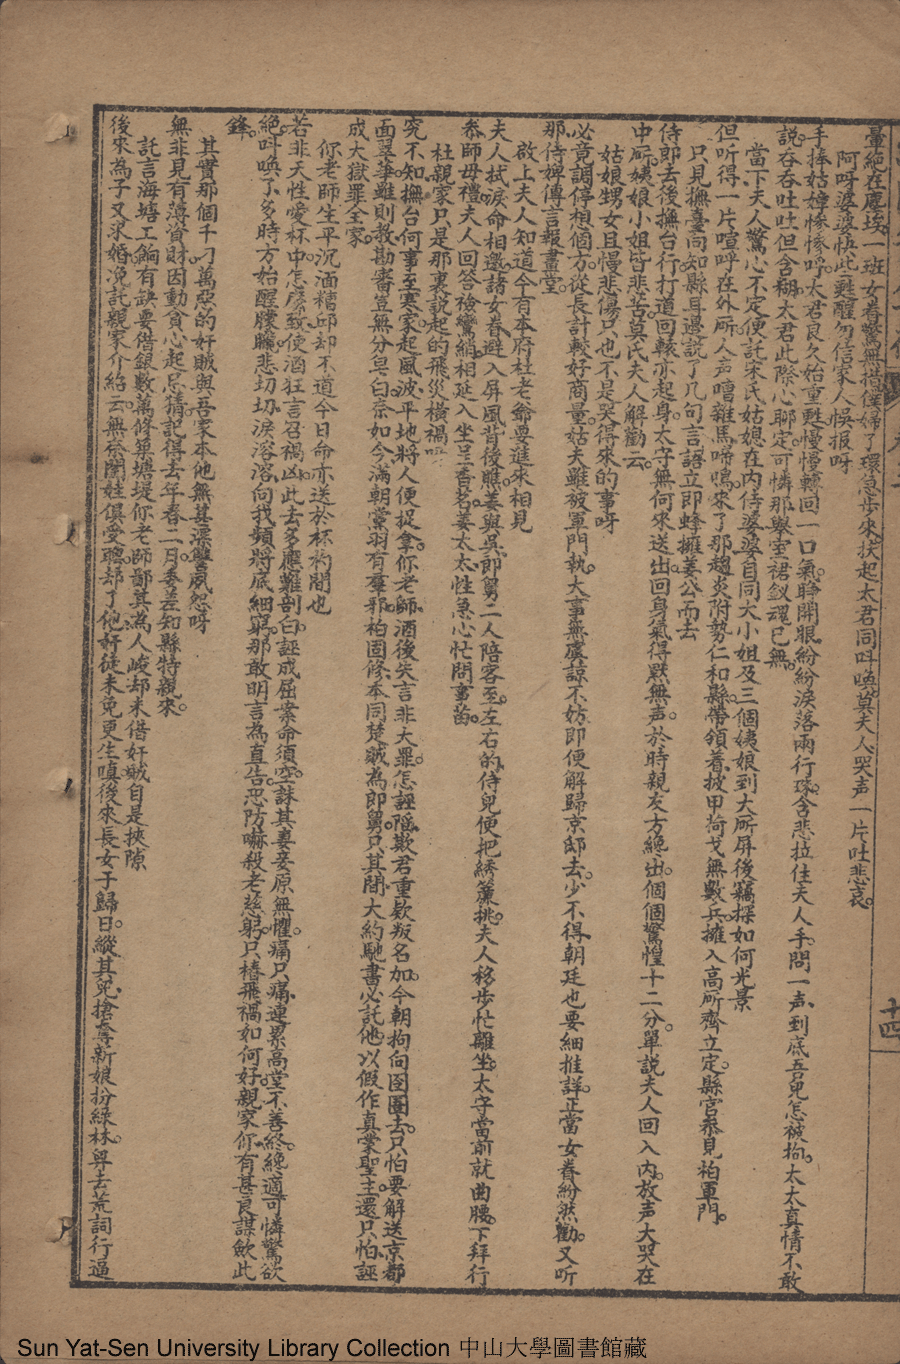 暈絕在塵埃。一班女眷驚無措。僕婦丫環急步來。扶起太君同叫喚。莫夫人哭声一片吐悲哀。
阿呀婆婆悟此甦醒勿信家人悞报呀
手捧姑嫜慘慘呼。太君良久始重甦。慢慢轉回一口氣。睁開眼紛紛淚落兩行珠。含悲拉住夫人手。問一声到底吾兒怎被拘。太太真情不敢
説。吞吞吐吐但含糊。太君此際心聊定。可憐那舉室裙釵魂已無。
當下夫人驚心不定便託宋氏姑媳在內侍婆婆自同大小姐及三個姨娘到大所屏後竊探如何光景
但听得一片喧呼在外所。人声嘈雜馬啼鳴。來了那趨炎附勢仁和縣。帶領着披甲荷戈無數兵。擁入高所齊立定。縣官叅見柏軍門。
只見撫臺向知縣耳邊説了几句言語立即蜂擁姜公而去
侍郎去後撫台行。打道回轅亦起身。太守無何來送出。回身氣得默無声。於時親友方纔出。個個驚惶十二分。單説夫人回入內。放声大哭在
中所。姨娘小姐皆悲苦。莫氏夫人解勸云。
姑娘甥女且慢悲傷只也不是哭得來的事呀
必竟調停想個方。從長計較好商量。姑夫雖被軍門執。大事無虞諒不妨。即便解歸京邸去。少不得朝廷也要細推詳。正當女眷紛然勸。又听
那侍婢傳言報畫堂。
啟上夫人知道今有本府杜老爺要進來相見
夫人拭淚命相邀。諸女眷避入屏風背後瞧。姜與吳郎舅二人陪客至。左右的侍兒便把綉簾挑。夫人移步忙離坐。太守當前就曲腰。下拜行
叅師母禮。夫人回答襝鸞綃。相延入坐呈香茗。姜太太性急心忙問事苗。
杜親家只是那裏説起的飛災橫禍呀
究不知撫台何事至寒家。起風波平地將人便捉拿。你老師酒後失言非大罪。怎誣隱欺君重欵叛名加。今朝拘向囹圄去。只怕要解送京都
面翠華。雖則教勘審豈無分皂白。柰如今滿朝黨羽有羣邪。柏固修本同楚賊為郎舅。只其間大約馳書必託他。以假作真蒙聖主。還只怕誣
成大獄罪全家。
你老師生平沉湎糟邱却不道今日命亦送於杯杓間也
若非天性愛杯中。怎縻致使酒狂言召禍凶。此去多應難剖白。誣成屈案命須空。誅其妻妾原無懼。痛只痛連累高堂不善終。纔適可憐驚欲
絕。叫喚了多時方始醒朦朧。悲切切淚溶溶。向我頻將底細窮。那敢明言為直告。恐防嚇殺老慈躬。只樁飛禍如何好。親家你有甚良謀歛此
鋒。
其實那個千刁萬惡的奸賊與吾家本他無甚深讐夙怨呀
無非見有薄資財。因動貪心起忌猜。記得去年春二月。委差知縣特親來。
託言海塘工餉有缺要借銀數萬修築塘堤你老師鄙其為人峻却未借奸賊自是挾隙
後來為子又求婚。凂託親家介紹云。無奈闔姓俱受聘。却了他奸徒未免更生嗔。後來長女于歸日。縱其兒搶奪新娘扮綠林。舁去荒詞行逼
十四
Sun Yat-Sen University Library Collection 中山大學圖書館藏